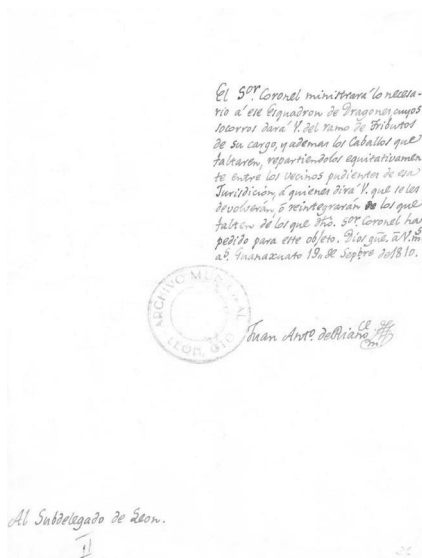 El Sor. Coronel ministrará lo necesa-
rio á ese Esquadron de Dragones, cuyos
socorros dará V. del ramo de Tributos
de su cargo, y ademas los Caballos que
faltaren, repartiendolos equitativamen-
te entre los vecinos pudientes de esa
Jurisdicion, á quienes dirá V. que se les
devolverán, ó reintegrarán de los que
falten de los que dho. Sor. Coronel ha
pedido para este objeto. Dios gũe. á V. ms.
as. Guanaxuato 19 de Sepbre de 1810.
ARCHIVO MUNICIPAL
LEON, GTO.
Juan Anto. de Riaño
Al Subdelegado de Leon.